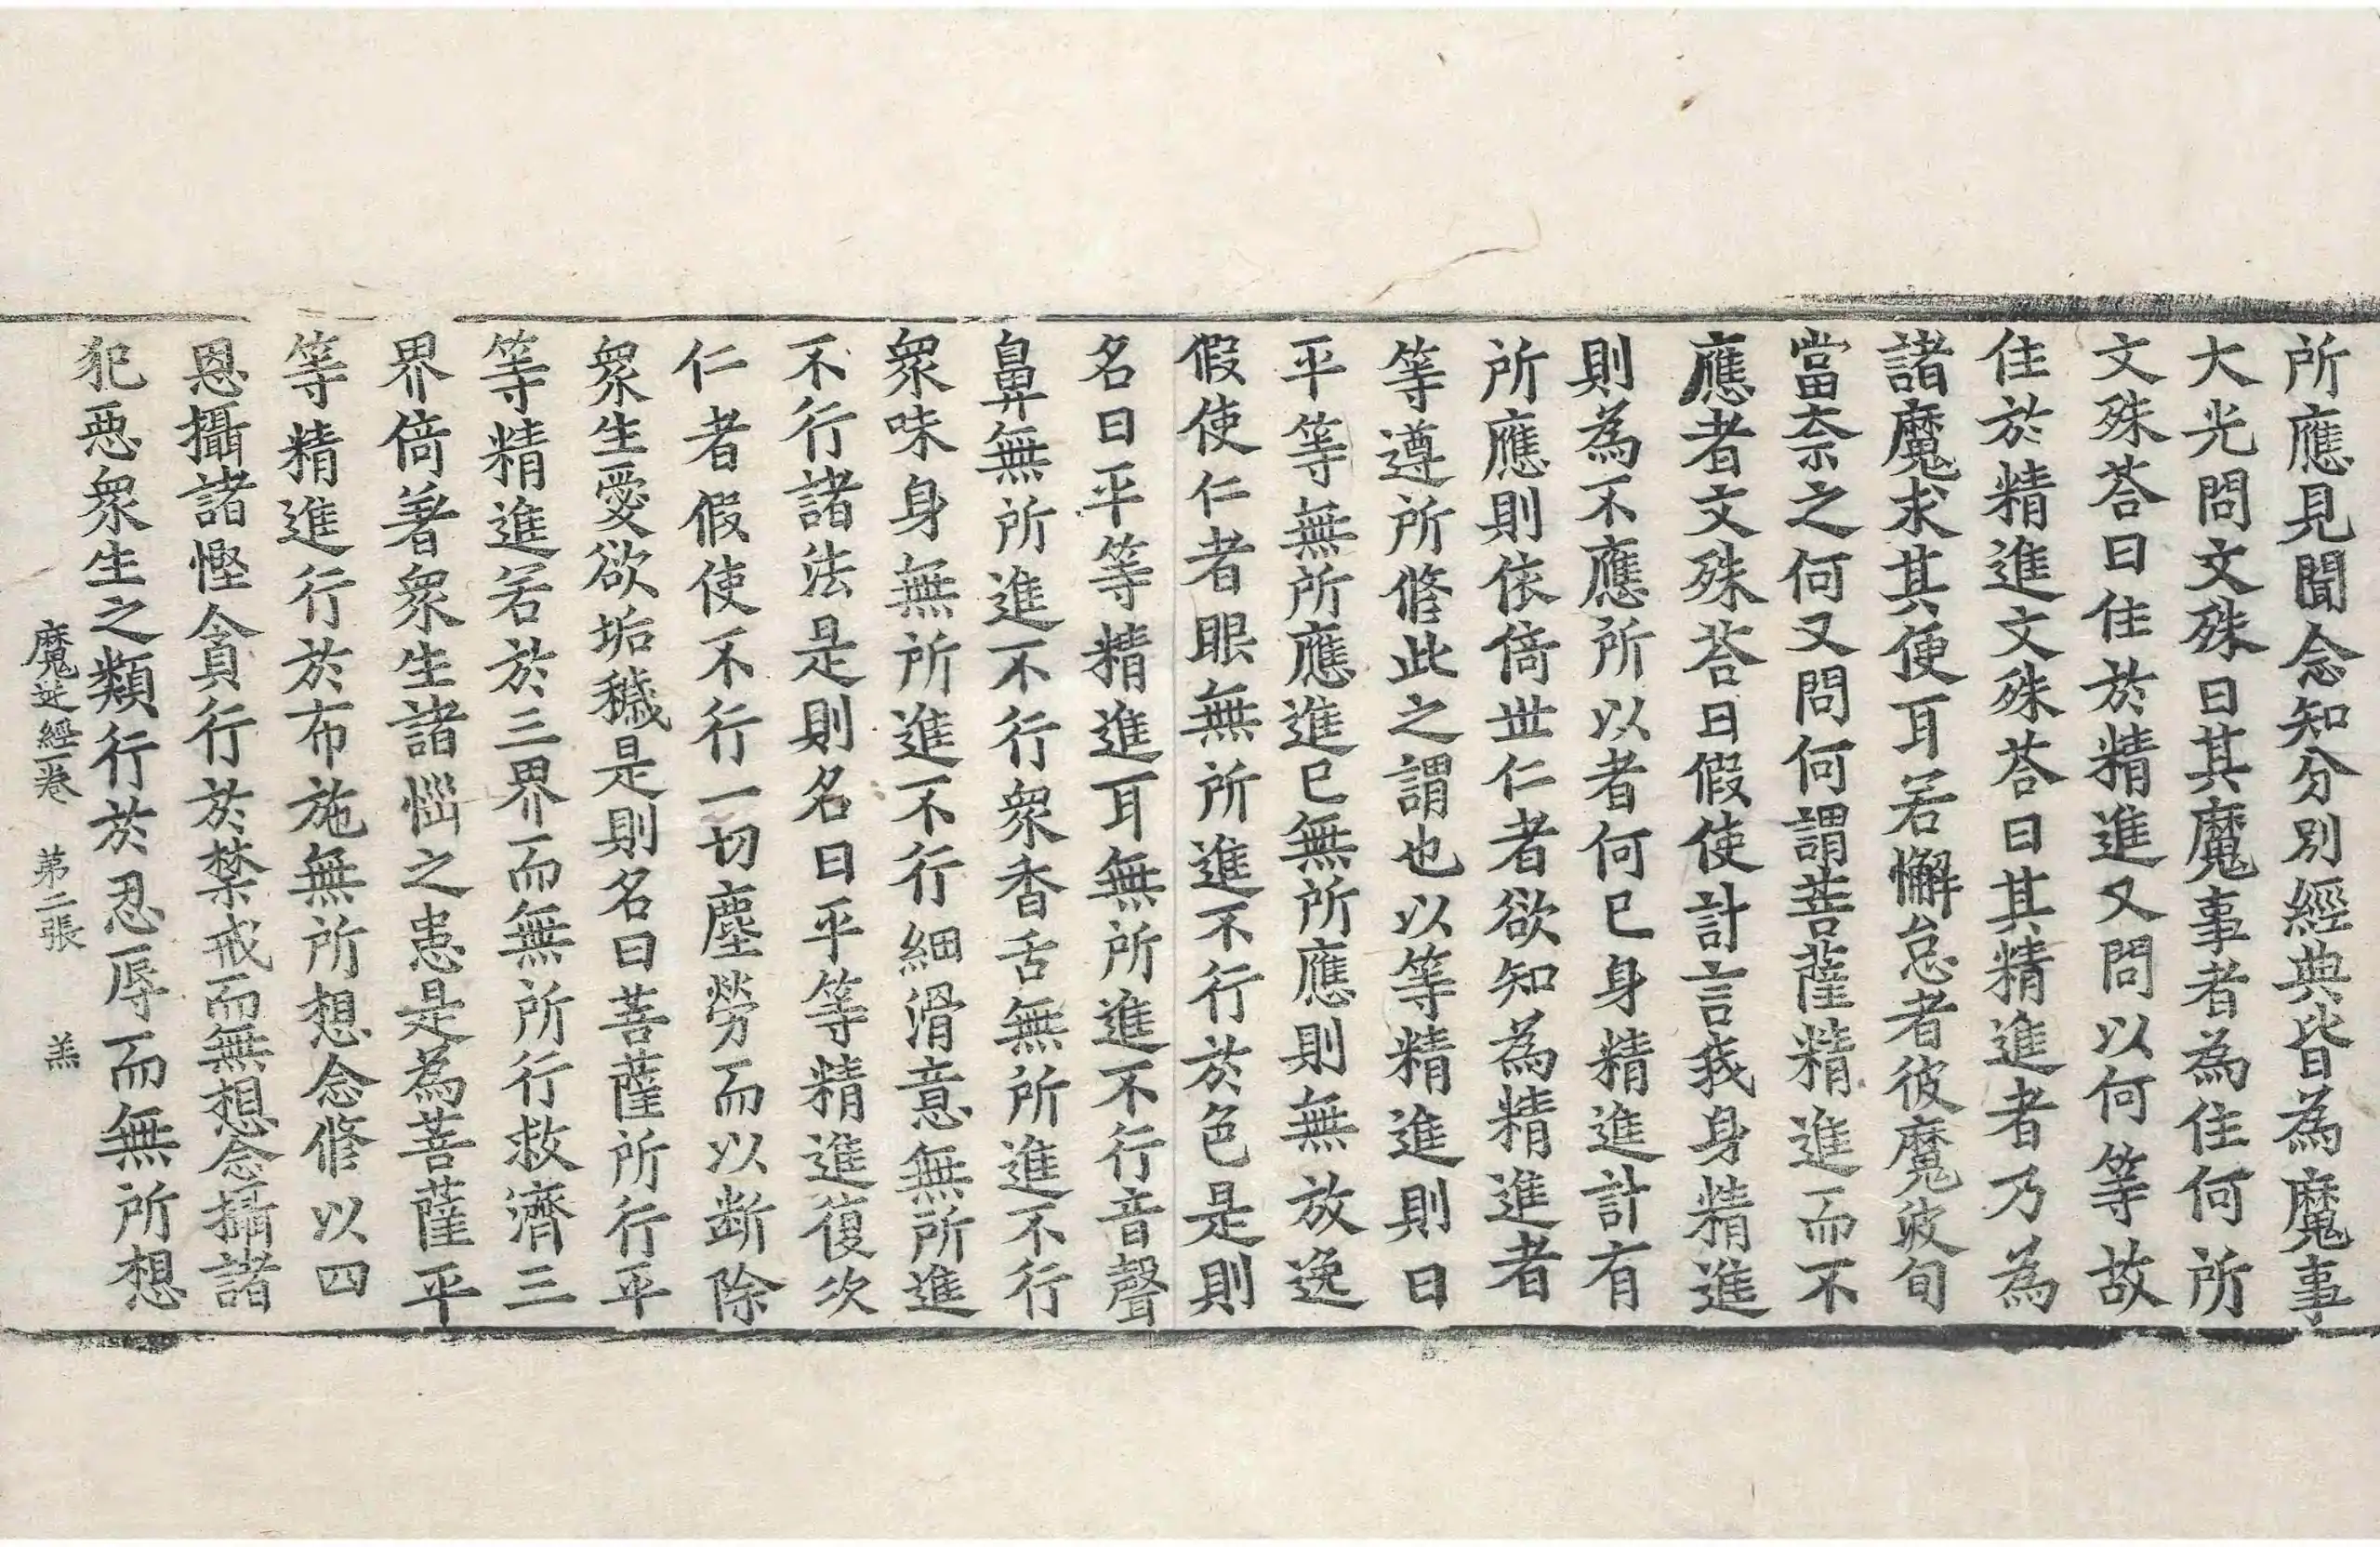 所應見聞念知分別經典皆為魔事
大光問文殊曰其魔事者為住何所
文殊荅曰住於精進又問以何等故
住於精進文殊荅曰其精進者乃為
諸魔求其便耳若懈怠者彼魔波旬
當柰之何又問何謂菩薩精進而不
應者文殊荅曰假使計言我身精進
則為不應所以者何已身精進計有
所應則依倚世仁者欲知為精進者
等遵所修此之謂也以等精進則曰
平等無所應進已無所應則無放逸
假使仁者眼無所進不行於色是則
名曰平等精進耳無所進不行音聲
鼻無所進不行眾香舌無所進不行
眾味身無所進不行細滑意無所進
不行諸法是則名曰平等精進復次
仁者假使不行一切塵勞而以斷除
眾生愛欲垢穢是則名曰菩薩所行平
等精進若於三界而無所行救濟三
界倚著眾生諸惱之患是為菩薩平
等精進行於布施無所想念修以四
恩攝諸慳貪行於禁戒而無想念攝諸
犯惡眾生之類行於忍辱而無所想
魔逆經一卷 第二張 羔